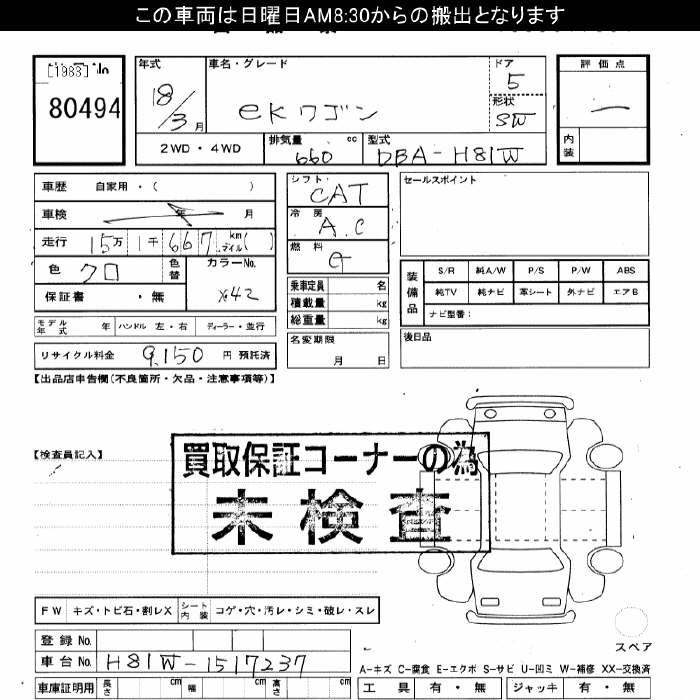 この車両は日曜日AM8:30からの搬出となります
[1983] No
80494
年式
18/3月
車名・グレード
eKワゴン
ドア
5
形状
SW
評価点
内装
2WD・4WD
排気量
660 cc
型式
DBA-H81W
車歴 自家用・( )
車検 年 月
走行 15万1千667 km マイル( )
色 クロ
色替
カラーNo.
X42
保証書 ・無
モデル年式 年
ハンドル 左・右
ディーラー・並行
リサイクル料金 9,150 円 預託済
シフト
CAT
冷房
A.C
燃料
G
乗車定員 名
積載量 kg
総重量 kg
名変期限
月 日
セールスポイント
装備品
S/R 純A/W P/S P/W ABS
純TV 純ナビ 革シート 外ナビ エアB
ナビ型番:
後日品
【出品店申告欄(不良箇所・欠品・注意事項等)】
【検査員記入】
買取保証コーナーの為
未検査
FW キズ・トビ石・割レX
シート内装 コゲ・穴・汚レ・シミ・破レ・スレ
登録No.
車台No. H81W-1517237
車庫証明用 長さ cm 幅 cm 高さ cm
スペア
A-キズ C-腐食 E-エクボ S-サビ U-凹ミ W-補修 XX-交換済
工具 有・無 ジャッキ 有・無